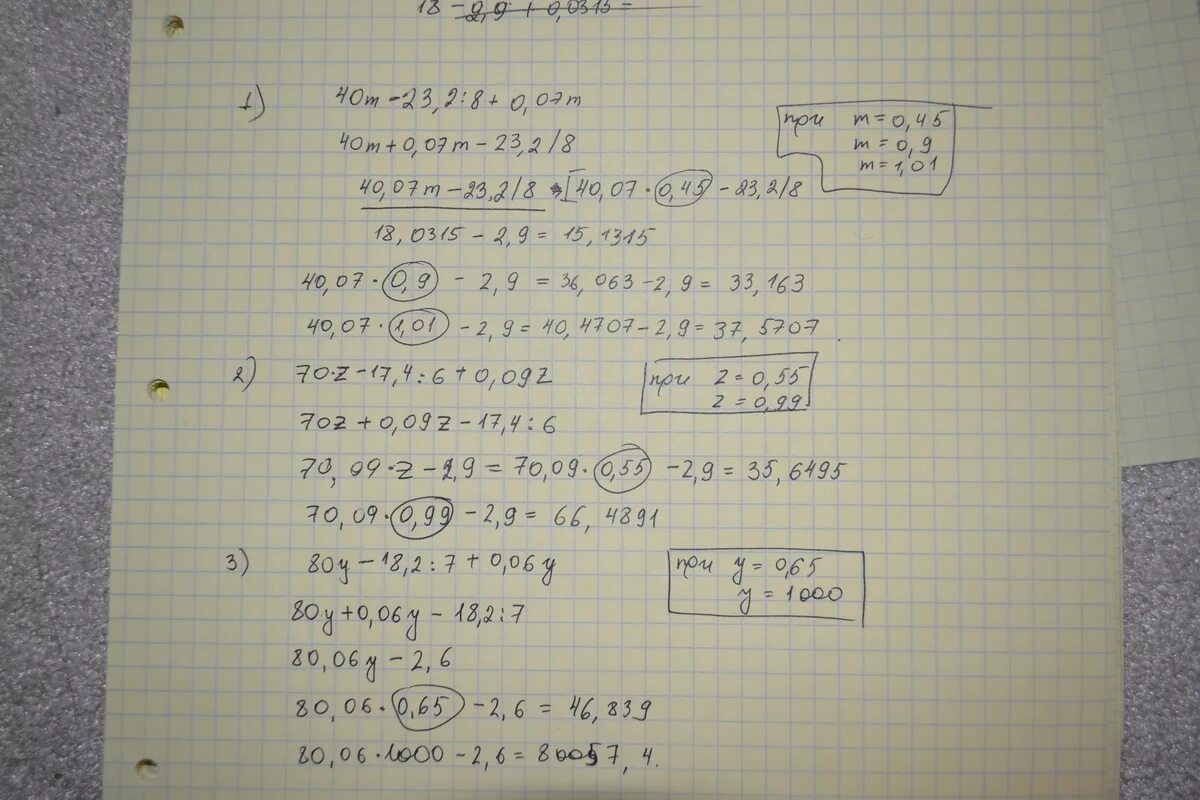 18 - 2,9 + 0,0315 =
1) 40m - 23,2 : 8 + 0,07m
при m = 0,45
m = 0,9
m = 1,01
40m + 0,07m - 23,2 / 8
40,07m - 23,2/8 40,07 · 0,45 - 23,2/8
18,0315 - 2,9 = 15,1315
40,07 · 0,9 - 2,9 = 36,063 - 2,9 = 33,163
40,07 · 1,01 - 2,9 = 40,4707 - 2,9 = 37,5707
2) 70·z - 17,4 : 6 + 0,09z
при z = 0,55
z = 0,99
70z + 0,09z - 17,4 : 6
70,09·z - 2,9 = 70,09 · 0,55 - 2,9 = 35,6495
70,09 · 0,99 - 2,9 = 66,4891
3) 80y - 18,2 : 7 + 0,06y
при y = 0,65
y = 1000
80y + 0,06y - 18,2 : 7
80,06y - 2,6
80,06 · 0,65 - 2,6 = 46,839
80,06 · 1000 - 2,6 = 80057,4.